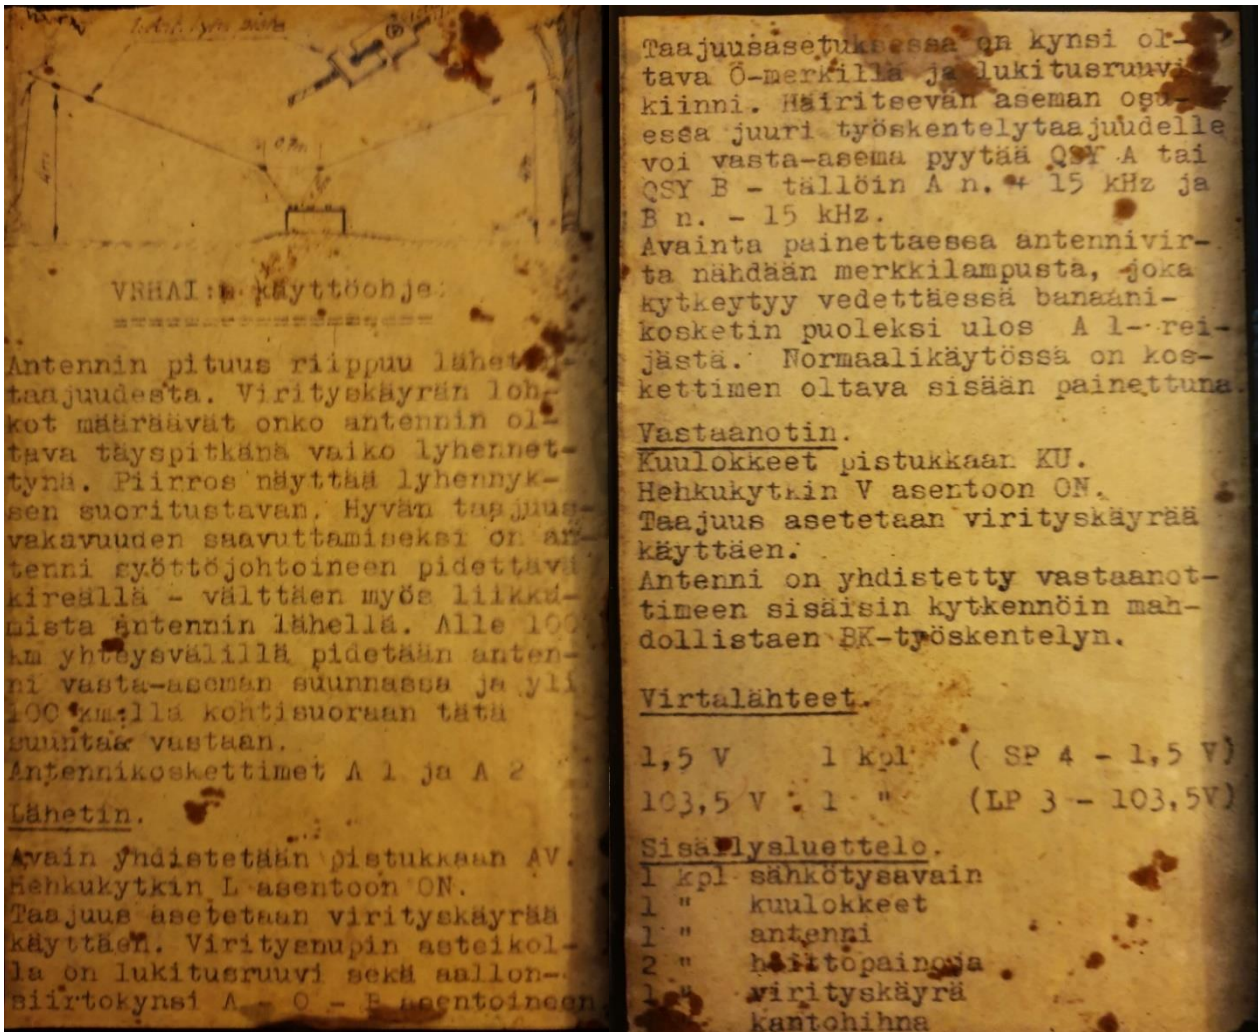 0,7m
VRHAI:n käyttöohje.
Antennin pituus riippuu
taajuudesta. Virityskäyrän loh-
kot määräävät onko antennin ol-
tava täyspitkänä vaiko lyhennet-
tynä. Piirros näyttää lyhennyk-
sen suoritustavan. Hyvän taajuus-
vakavuuden saavuttamiseksi on an-
tenni syöttöjohtoineen pidettävä
kireällä - välttäen myös liikku-
mista antennin lähellä. Alle 100
km yhteysvälillä pidetään anten-
ni vasta-aseman suunnassa ja yli
100 km:llä kohtisuoraan tätä
suuntaa vastaan.
Antennikoskettimet A 1 ja A 2
Lähetin.
Avain yhdistetään pistukkaan AV.
Hehkukytkin L asentoon ON.
Taajuus asetetaan virityskäyrää
käyttäen. Viritysnupin asteikol-
la on lukitusruuvi sekä aallon-
siirtokynsi A - O - B asentoineen
Taajuusasetuksessa on kynsi ol-
tava O-merkillä ja lukitusruuvi
kiinni. Häiritsevän aseman osu-
essa juuri työskentelytaajuudelle
voi vasta-asema pyytää QSY A tai
QSY B - tällöin A n. + 15 kHz ja
B n. - 15 kHz.
Avainta painettaessa antennivir-
ta nähdään merkkilampusta, joka
kytkeytyy vedettäessä banaani-
kosketin puoleksi ulos A 1- rei-
jästä. Normaalikäytössä on kos-
kettimen oltava sisään painettuna.
Vastaanotin.
Kuulokkeet pistukkaan KU.
Hehkukytkin V asentoon ON.
Taajuus asetetaan virityskäyrää
käyttäen.
Antenni on yhdistetty vastaanot-
timeen sisäisin kytkennöin mah-
dollistaen BK-työskentelyn.
Virtalähteet.
1,5 V 1 kpl ( SP 4 - 1,5 V)
103,5 V 1 " (LP 3 - 103,5V)
Sisällysluettelo.
1 kpl sähkötysavain
1 " kuulokkeet
1 " antenni
2 " heittopainoja
1 " virityskäyrä
kantohihna